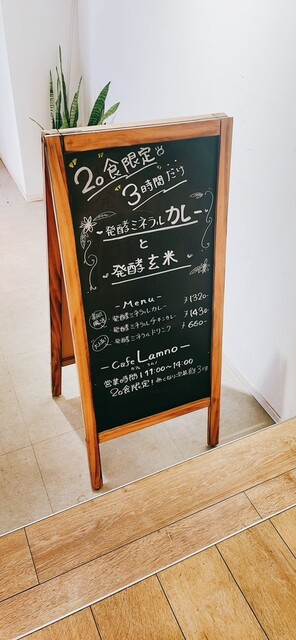 20食限定
3時間だけ
発酵ミネラルカレー
と
発酵玄米
- Menu -
発酵ミネラルカレー ¥1320-
発酵ミネラルチキンカレー ¥1430-
発酵ミネラルドリンク ¥660-
- Cafe Lamno -
営業時間 11:00~14:00
20食限定!